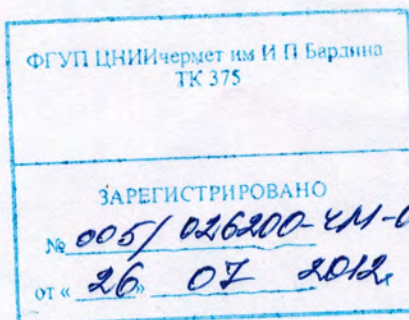 ФГУП ЦНИИчермет им И П Бардина
ТК 375
ЗАРЕГИСТРИРОВАНО
№ 005/026200-ЧМ-
от « 26 » 07 2012г